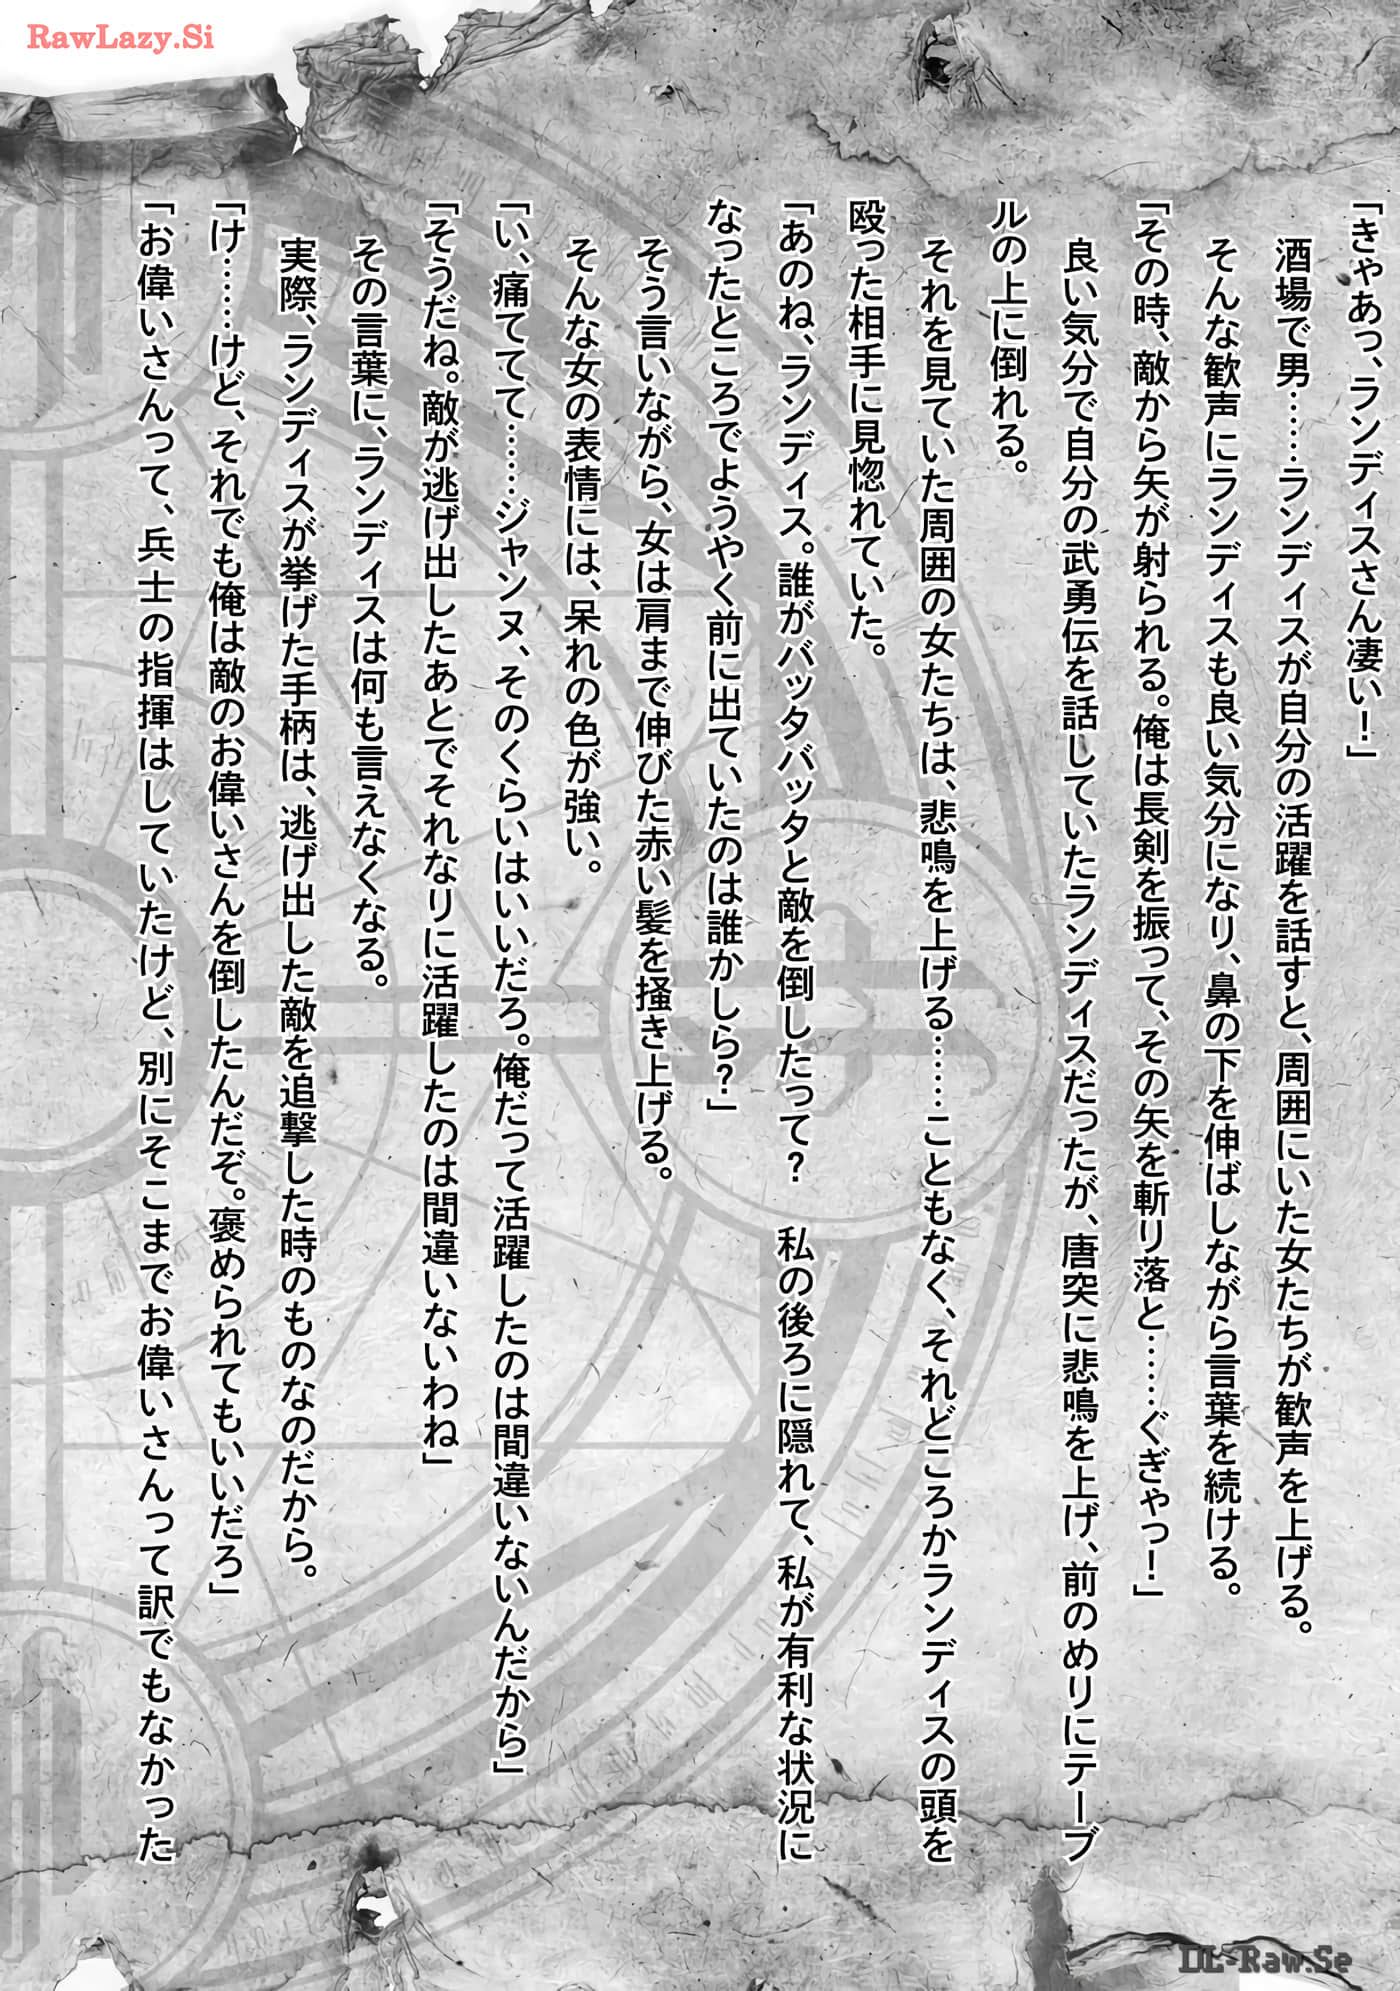 RawLazy.Si
「きゃあっ、ランディスさん凄い！」
酒場で男……ランディスが自分の活躍を話すと、周囲にいた女たちが歓声を上げる。
そんな歓声にランディスも良い気分になり、鼻の下を伸ばしながら言葉を続ける。
「その時、敵から矢が射られる。俺は長剣を振って、その矢を斬り落と……ぐぎゃっ！」
良い気分で自分の武勇伝を話していたランディスだったが、唐突に悲鳴を上げ、前のめりにテーブ
ルの上に倒れる。
それを見ていた周囲の女たちは、悲鳴を上げる……こともなく、それどころかランディスの頭を
殴った相手に見惚れていた。
「あのね、ランディス。誰がバッタバッタと敵を倒したって？　私の後ろに隠れて、私が有利な状況に
なったところでようやく前に出ていたのは誰かしら？」
そう言いながら、女は肩まで伸びた赤い髪を掻き上げる。
そんな女の表情には、呆れの色が強い。
「い、痛ててて……ジャンヌ、そのくらいはいいだろ。俺だって活躍したのは間違いないんだから」
「そうだね。敵が逃げ出したあとでそれなりに活躍したのは間違いないわね」
その言葉に、ランディスは何も言えなくなる。
実際、ランディスが挙げた手柄は、逃げ出した敵を追撃した時のものなのだから。
「け……けど、それでも俺は敵のお偉いさんを倒したんだぞ。褒められてもいいだろ」
「お偉いさんって、兵士の指揮はしていたけど、別にそこまでお偉いさんって訳でもなかった
DL-Raw.Se